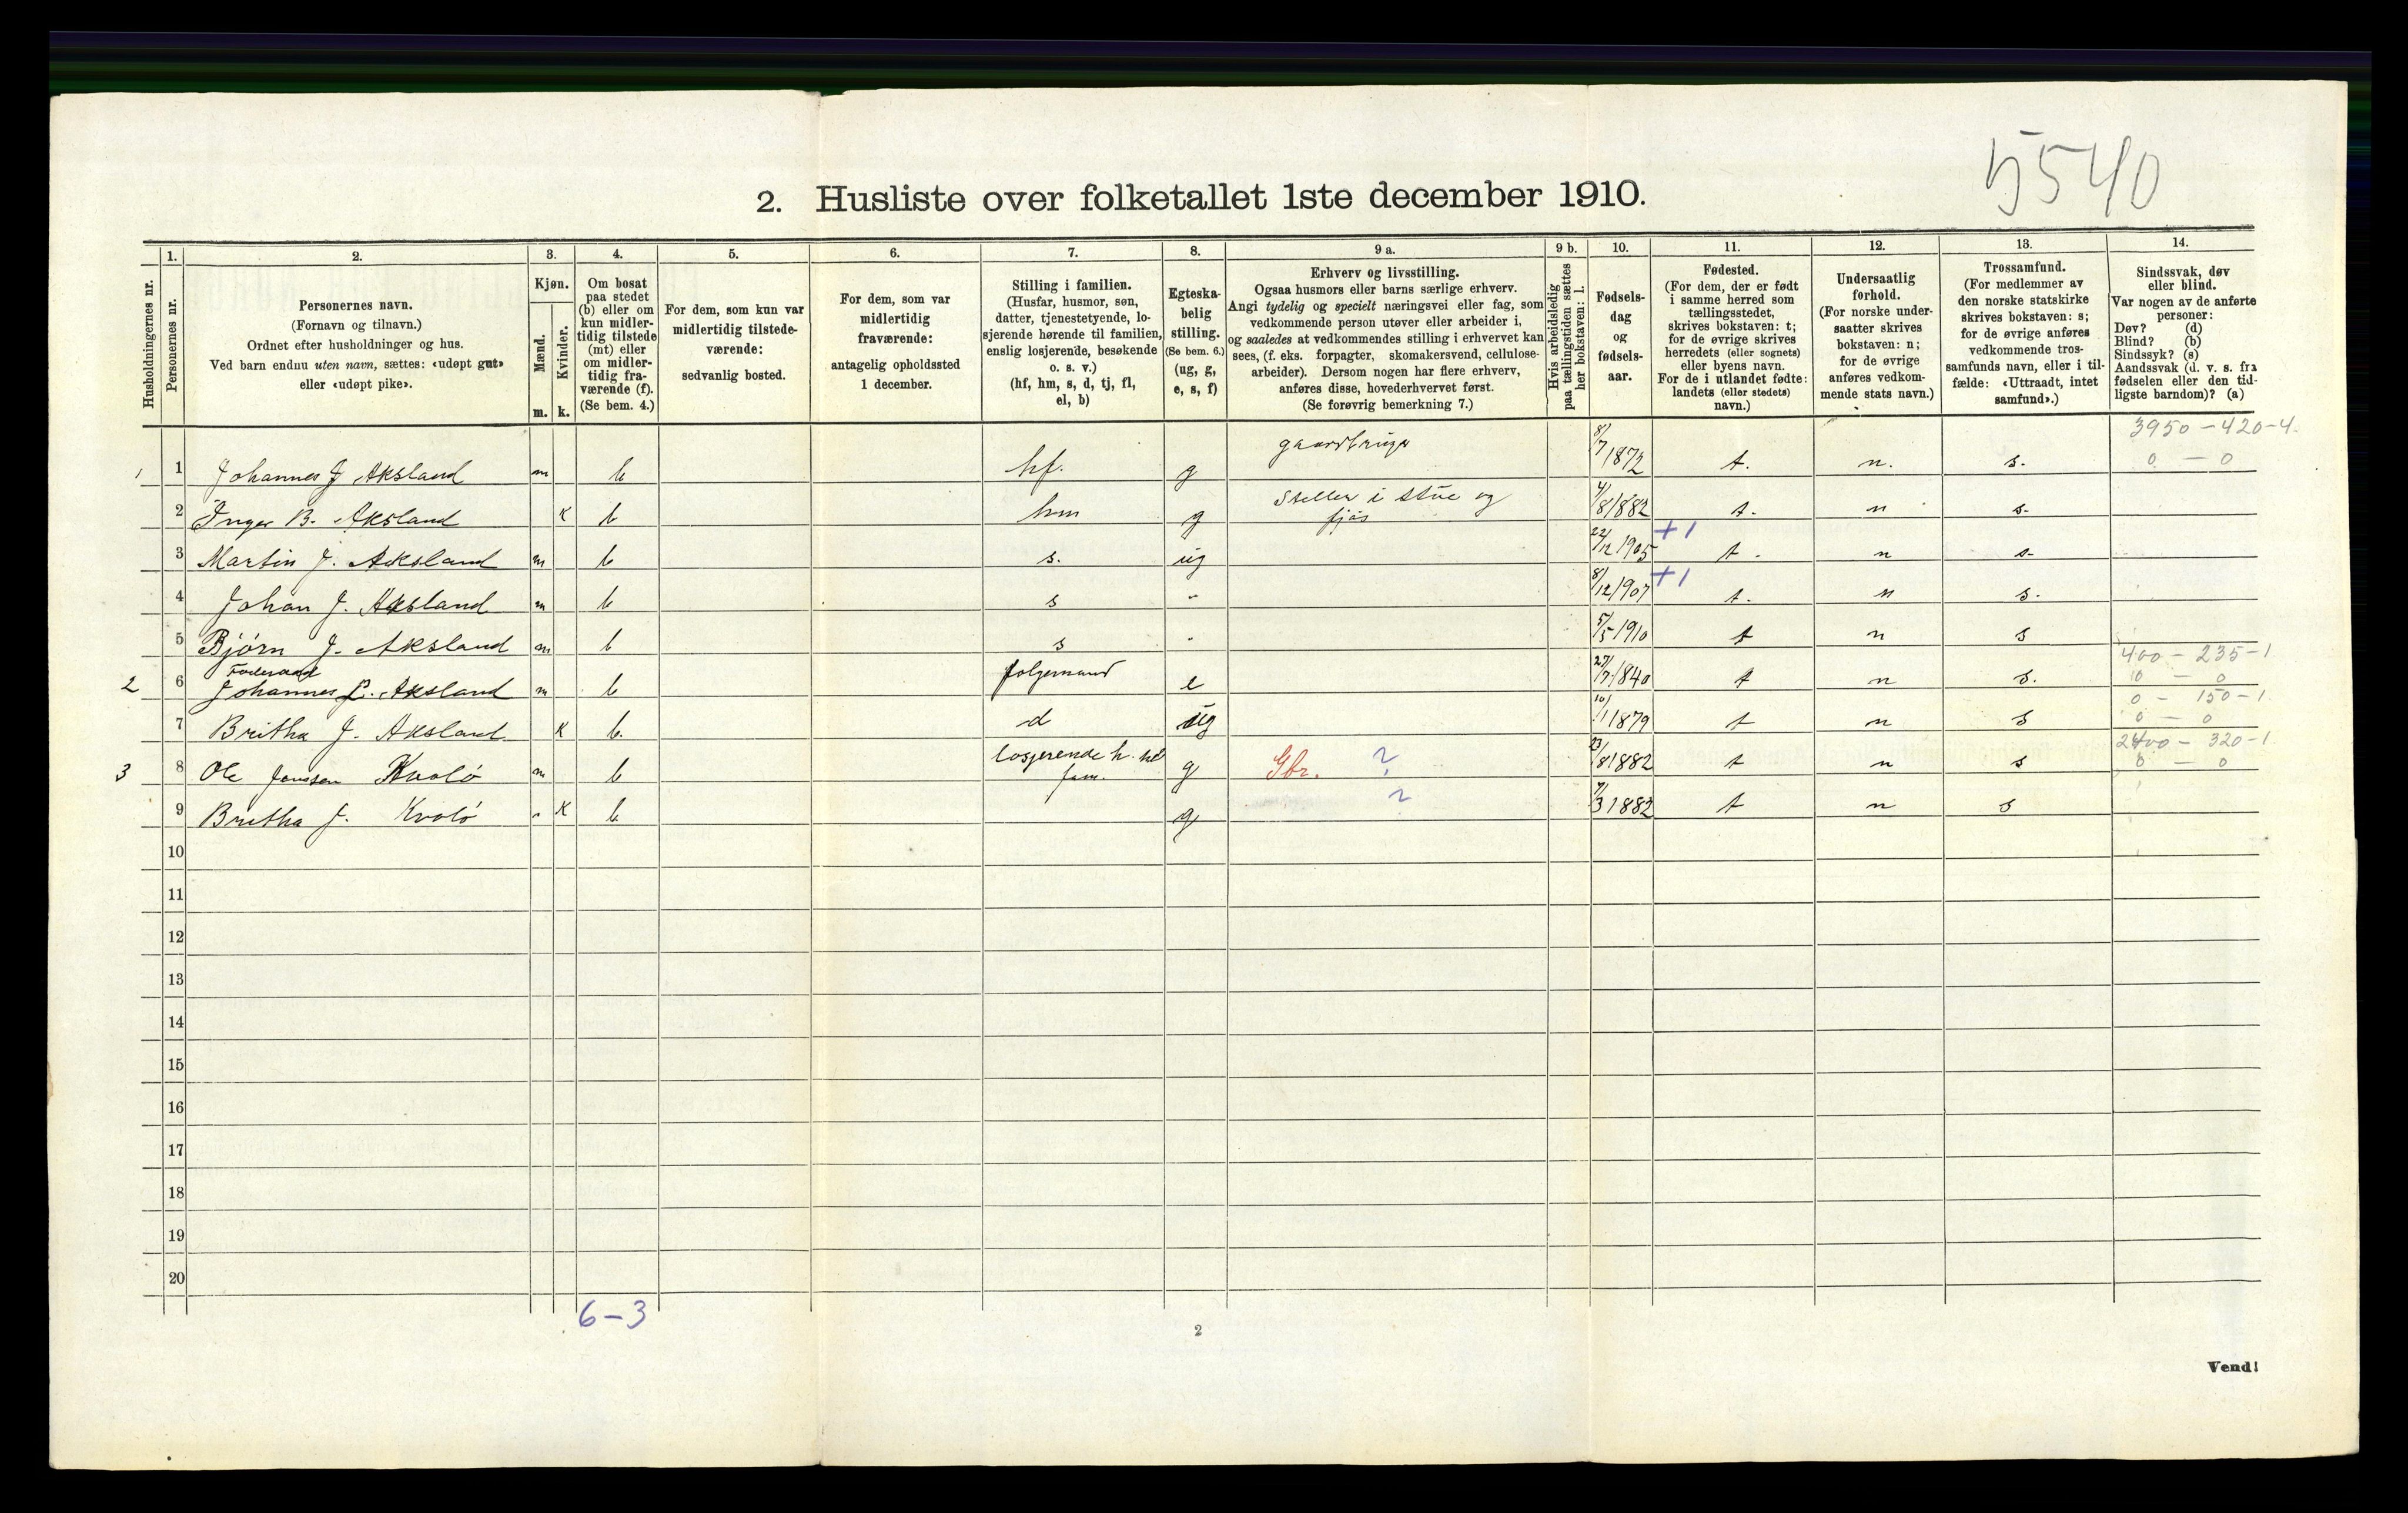 5540
2. Husliste over folketallet 1ste december 1910.
Husholdningernes nr.
1.
Personernes nr.
2.
Personernes navn.
(Fornavn og tilnavn.)
Ordnet efter husholdninger og hus.
Ved barn endnu uten navn, sættes: «udøpt gut»
eller «udøpt pike».
3.
Kjøn.
Mænd.
m.
Kvinder.
k.
4.
Om bosat
paa stedet
(b) eller om
kun midler-
tidig tilstede
(mt) eller
om midler-
tidig fra-
værende (f).
(Se bem. 4.)
5.
For dem, som kun var
midlertidig tilstede-
værende:
sedvanlig bosted.
6.
For dem, som var
midlertidig
fraværende:
antagelig opholdssted
1 december.
7.
Stilling i familien.
(Husfar, husmor, søn,
datter, tjenestetyende, lo-
sjerende hørende til familien,
enslig losjerende, besøkende
o. s. v.)
(hf, hm, s, d, tj, fl,
el, b)
8.
Egteska-
belig
stilling.
(Se bem. 6.)
(ug, g,
e, s, f)
9 a.
Erhverv og livsstilling.
Ogsaa husmors eller barns særlige erhverv.
Angi tydelig og specielt næringsvei eller fag, som
vedkommende person utøver eller arbeider i,
og saaledes at vedkommendes stilling i erhvervet kan
sees, (f. eks. forpagter, skomakersvend, cellulose-
arbeider). Dersom nogen har flere erhverv,
anføres disse, hovederhvervet først.
(Se forøvrig bemerkning 7.)
9 b.
Hvis arbeidsledig
paa tællingstiden sættes
her bokstaven: l.
10.
Fødsels-
dag
og
fødsels-
aar.
11.
Fødested.
(For dem, der er født
i samme herred som
tællingsstedet,
skrives bokstaven: t;
for de øvrige skrives
herredets (eller sognets)
eller byens navn.
For de i utlandet fødte:
landets (eller stedets)
navn.)
12.
Undersaatlig
forhold.
(For norske under-
saatter skrives
bokstaven: n;
for de øvrige
anføres vedkom-
mende stats navn.)
13.
Trossamfund.
(For medlemmer av
den norske statskirke
skrives bokstaven: s;
for de øvrige anføres
vedkommende tros-
samfunds navn, eller i til-
fælde: «Uttraadt, intet
samfund».)
14.
Sindssvak, døv
eller blind.
Var nogen av de anførte
personer:
Døv? (d)
Blind? (b)
Sindssyk? (s)
Aandssvak (d. v. s. fra
fødselen eller den tid-
ligste barndom)? (a)
3950 - 420-4.
1 1 Johannes J Aksland m b hf. g gaardbruger 8/7 1872 t. n. s. 0 - 0
2 Inger B. Aksland K b hm g Steller i stue og fjøs 4/8 1882 t. n s.
3 Martin J. Aksland m b s. ug 22/12 1905 +1 t. n s.
4 Johan J. Aksland m b s " 8/12 1907 +1 t. n s.
5 Bjørn J. Aksland m b s " 5/5 1910 t n s
Føderaad 400 - 235-1
2 6 Johannes L. Aksland m b folgemand e 27/7 1840 t n s. 0 - 0
0 - 150-1.
7 Britha J. Aksland K b. d ug 10/1 1879 t n s 0 - 0
2400 - 320-1
3 8 Ole Jonssen Kvolø m b losjerende h. til fam. g Gbr. ? 23/8 1882 t n s 0 - 0
9 Britha J. Kvolø K b g ? 7/3 1882 t n s
10
11
12
13
14
15
16
17
18
19
20
6-3
2
Vend!